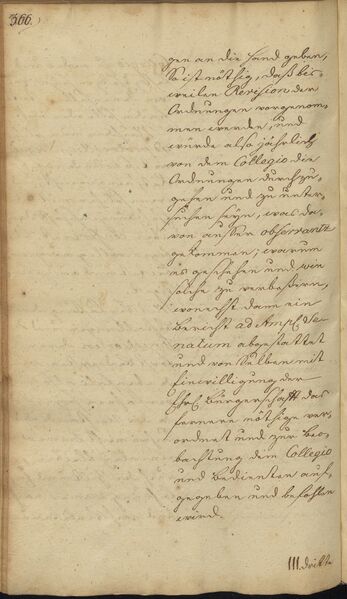 366.
gen an die Hand geben,
So ist nöthig, daß bis-
weilen Revision der
Ordnungen vorgenom-
men werde, und
würde also jährlich
von dem Collegio die
Ordnungen durchzu-
gehen und zu unter-
suchen seyn, was da-
von ausser observantz
gekommen, warum
es geschehen und wie
solche zu verbeßern,
wonechst dann ein
Bericht ad Ampl. Se-
natum abgestattet
und von Selben mit
Einwilligung der
Ehrl. Bürgerschafft das
fernere nöthige ver-
ordnet und zur Beo-
bachtung dem Collegio
und Bedienten auf-
gegeben und befohlen
wird.
III. dritte